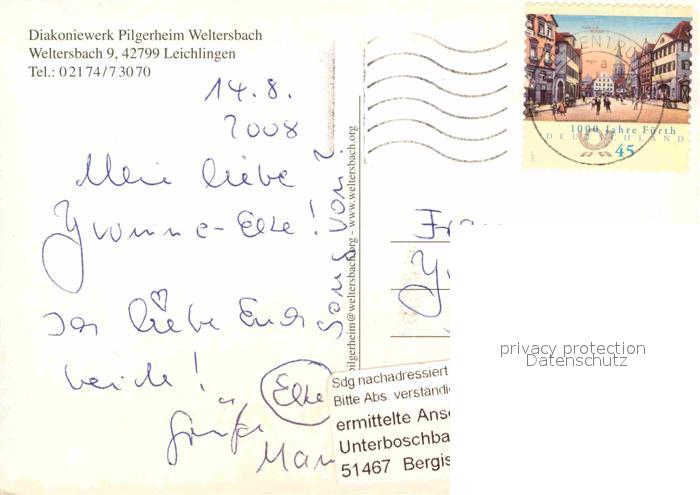 Diakoniewerk Pilgerheim Weltersbach
Weltersbach 9, 42799 Leichlingen
Tel.: 0 21 74 / 7 30 70
14.8.
2008
Meine liebe
Yvonne-Elke!
Ich liebe Euch
beide!
Elke
Grüße
pilgerheim@weltersbach.org - www.weltersbach.org
1000 Jahre Fürth
DEUTSCHLAND
45
ZENTRUM
Sdg nachadressiert
Bitte Abs. verständi
ermittelte Ans
Unterboschba
51467 Bergis
privacy protection
Datenschutz